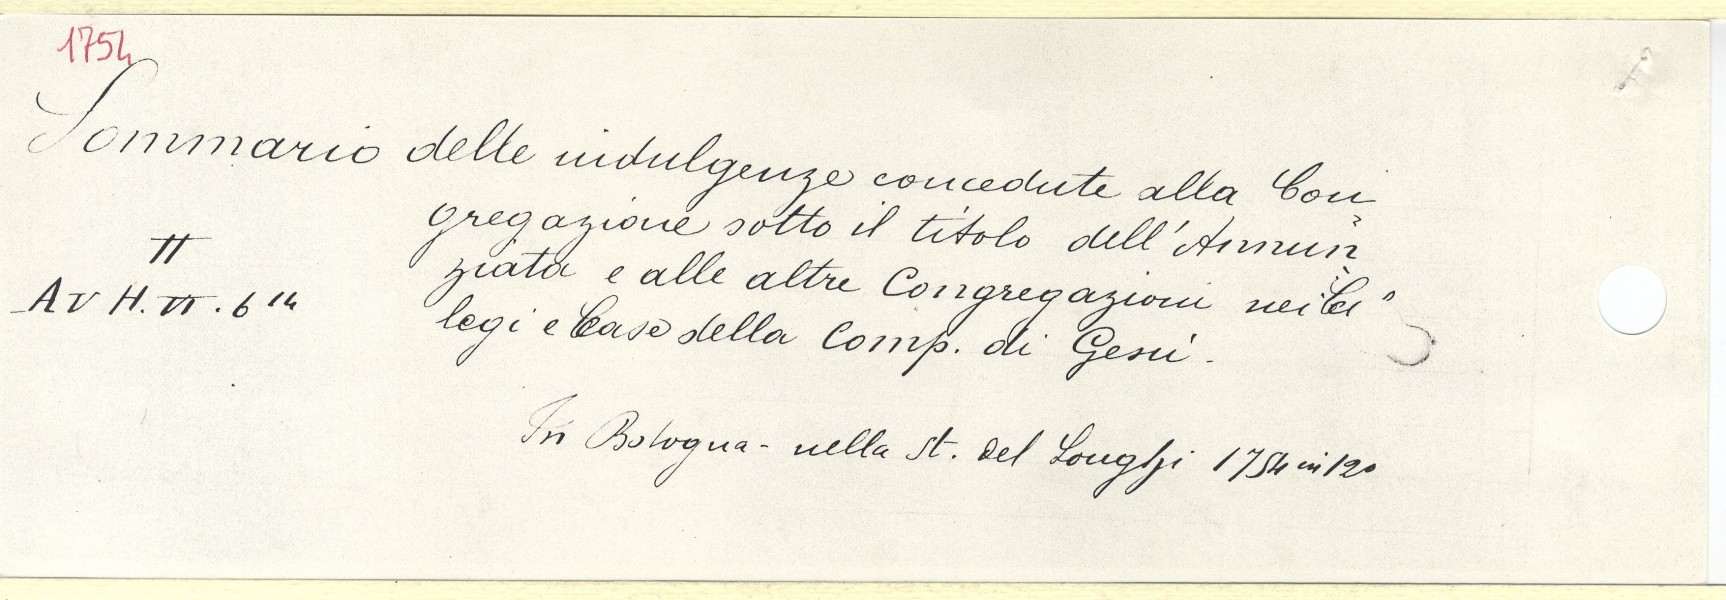 1754
Sommario delle indulgenze concedute alla Con
gregazione sotto il titolo dell'Annun
ziata e alle altre Congregazioni nei Col
legi e Case della Comp. di Gesù.
II
AV H. VI. 6 14
In Bologna - nella st. del Longhi 1754 in 12°